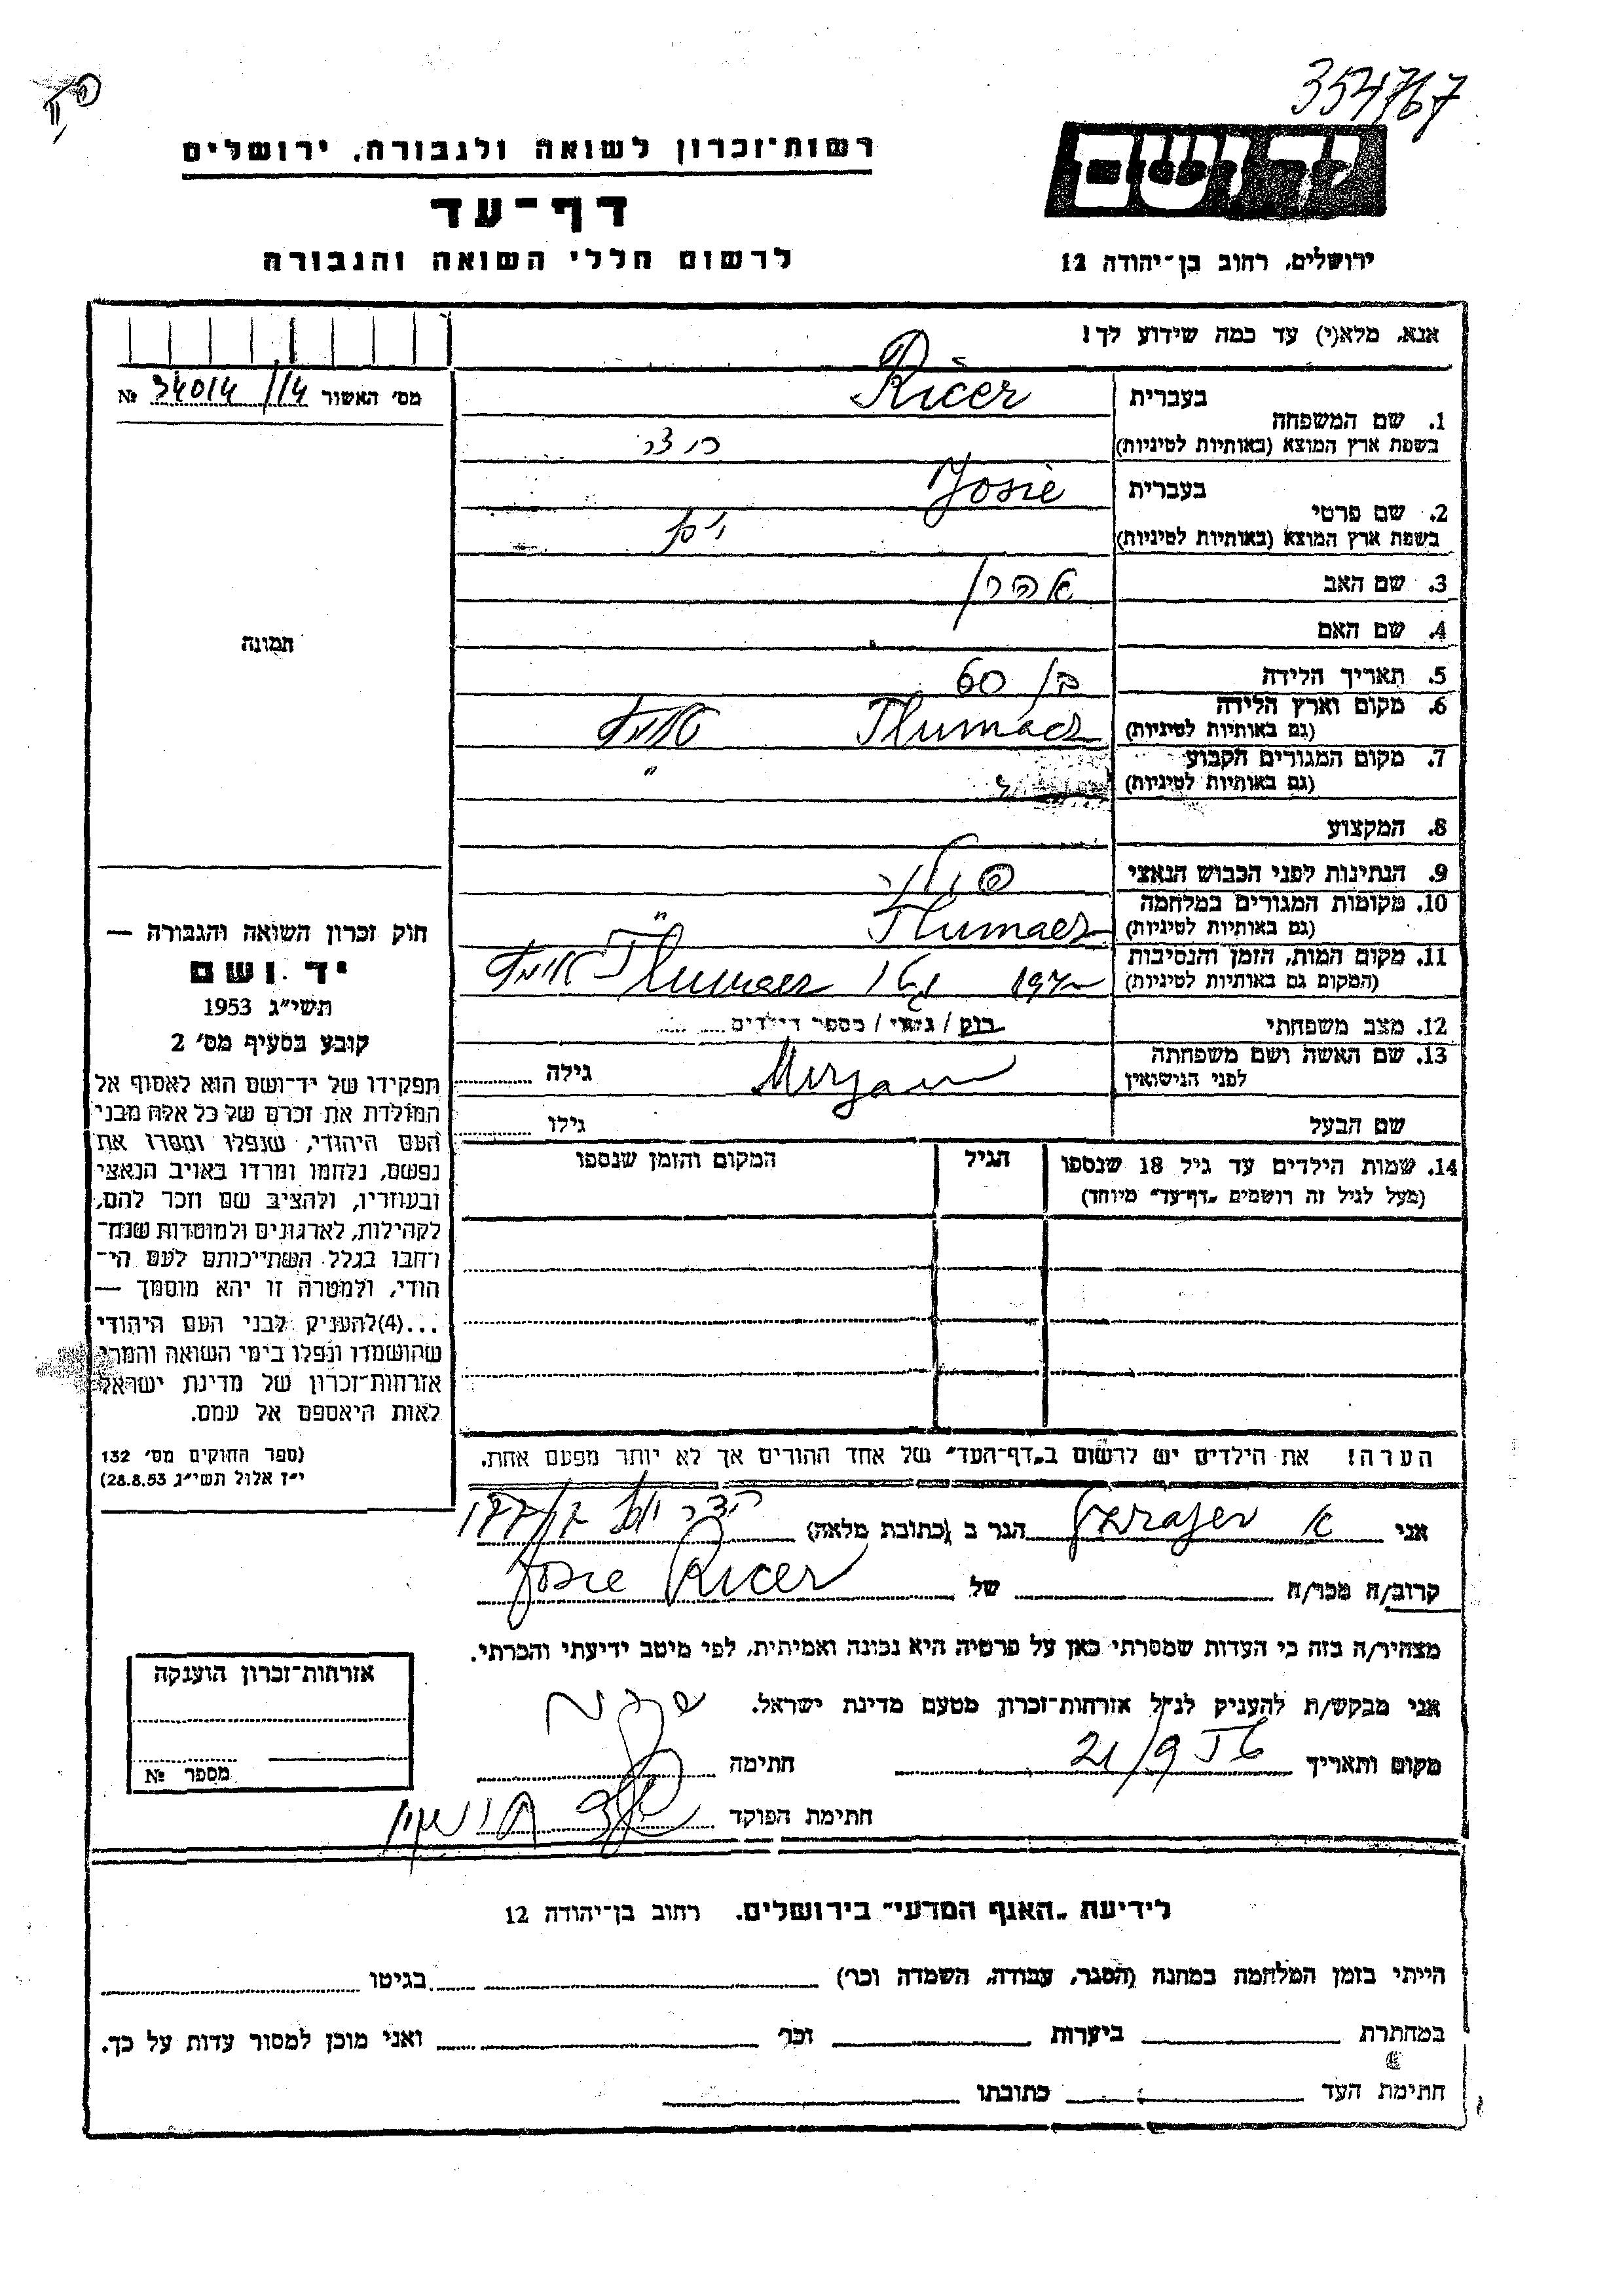 354767
יד ושם
רשות־זכרון לשואה ולגבורה, ירושלים
דף־עד
לרשום חללי השואה והגבורה
ירושלים, רחוב בן־יהודה 12
אנא, מלא(י) עד כמה שידוע לך!
מס׳ האשור 34014/14 №
תמונה
1. שם המשפחה
בעברית Ricer
בשפת ארץ המוצא (באותיות לטיניות)
2. שם פרטי
בעברית Josie
בשפת ארץ המוצא (באותיות לטיניות)
3. שם האב אהרן
4. שם האם
5. תאריך הלידה בן 60
6. מקום וארץ הלידה Tlumacz
(גם באותיות לטיניות)
7. מקום המגורים הקבוע "
(גם באותיות לטיניות)
8. המקצוע
9. הנתינות לפני הכבוש הנאצי פולני
10. מקומות המגורים במלחמה Tlumacz "
(גם באותיות לטיניות)
11. מקום המות, הזמן והנסיבות Tlumacz
(המקום גם באותיות לטיניות)
12. מצב משפחתי רוק / נשוי / מספר הילדים
13. שם האשה ושם משפחתה לפני הנישואין Meryam גילה
שם הבעל גילו
14. שמות הילדים עד גיל 18 שנספו הגיל המקום והזמן שנספו
(מעל לגיל זה רושמים „דף־עד״ מיוחד)
הערה! את הילדים יש לרשום ב„דף־העד״ של אחד ההורים אך לא יותר מפעם אחת.
חוק זכרון השואה והגבורה —
יד ושם
תשי״ג 1953
קובע בסעיף מס׳ 2
תפקידו של יד־ושם הוא לאסוף אל
המולדת את זכרם של כל אלה מבני
העם היהודי, שנפלו ומסרו את
נפשם, נלחמו ומרדו באויב הנאצי
ובעוזריו, ולהציב שם וזכר להם,
לקהילות, לארגונים ולמוסדות שנח־
רחבו בגלל השתייכותם לעם הי־
הודי, ולמטרה זו יהא מוסמך —
...(4)להעניק לבני העם היהודי
שהושמדו ונפלו בימי השואה והמרי
אזרחות־זכרון של מדינת ישראל
לאות היאספם אל עמם.
(ספר החוקים מס׳ 132
י״ז אלול תשי״ג 28.8.53)
אני הגר ב (כתובת מלאה)
קרוב/ה מכר/ה של Josie Ricer
מצהיר/ה בזה כי העדות שמסרתי כאן על פרטיה היא נכונה ואמיתית, לפי מיטב ידיעתי והכרתי.
אני מבקש/ת להעניק לנ״ל אזרחות־זכרון מטעם מדינת ישראל.
מקום ותאריך 21/9 חתימה
חתימת הפוקד
אזרחות־זכרון הוענקה
מספר №
לידיעת „האגף המדעי״ בירושלים, רחוב בן־יהודה 12
הייתי בזמן המלחמה במחנה (הסגר, עבודה, השמדה וכו׳) בגיטו
במחתרת ביערות וכו׳ ואני מוכן למסור עדות על כך.
חתימת העד כתובתו